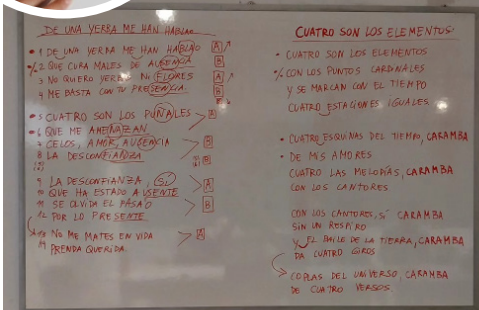 DE UNA YERBA ME HAN HABLAO
1 DE UNA YERBA ME HAN HABLAO A
% 2 QUE CURA MALES DE AUSENCIA B
3 NO QUIERO YERBAS NI FLORES A
4 ME BASTA CON TU PRESENCIA. B
5 CUATRO SON LOS PUÑALES A
6 QUE ME AMENAZAN
7 CELOS, AMOR, AUSENCIA B
8 LA DESCONFIANZA
LA DESCONFIANZA, SÍ A
10 QUE HA ESTADO AUSENTE
11 SE OLVIDA EL PASAO B
12 POR LO PRESENTE
13 NO ME MATES EN VIDA A
14 PRENDA QUERIDA.
CUATRO SON LOS ELEMENTOS:
CUATRO SON LOS ELEMENTOS
% CON LOS PUNTOS CARDINALES
Y SE MARCAN CON EL TIEMPO
CUATRO ESTACIONES IGUALES
CUATRO ESQUINAS DEL TIEMPO, CARAMBA
DE MIS AMORES
CUATRO LAS MELODÍAS, CARAMBA
CON LOS CANTORES
CON LOS CANTORES, SÍ CARAMBA
SIN UN RESPIRO
Y EL BAILE DE LA TIERRA, CARAMBA
DA CUATRO GIROS
COPLAS DEL UNIVERSO, CARAMBA
DE CUATRO VERSOS.